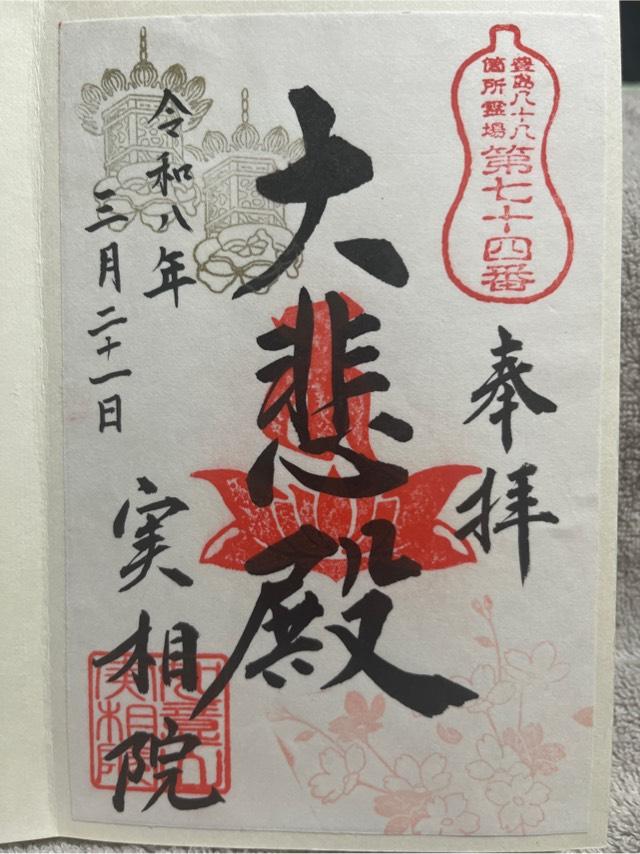 豊島八十八
箇所霊場
第七十四番
奉拝
大悲殿
令和八年
三月二十一日
実相院